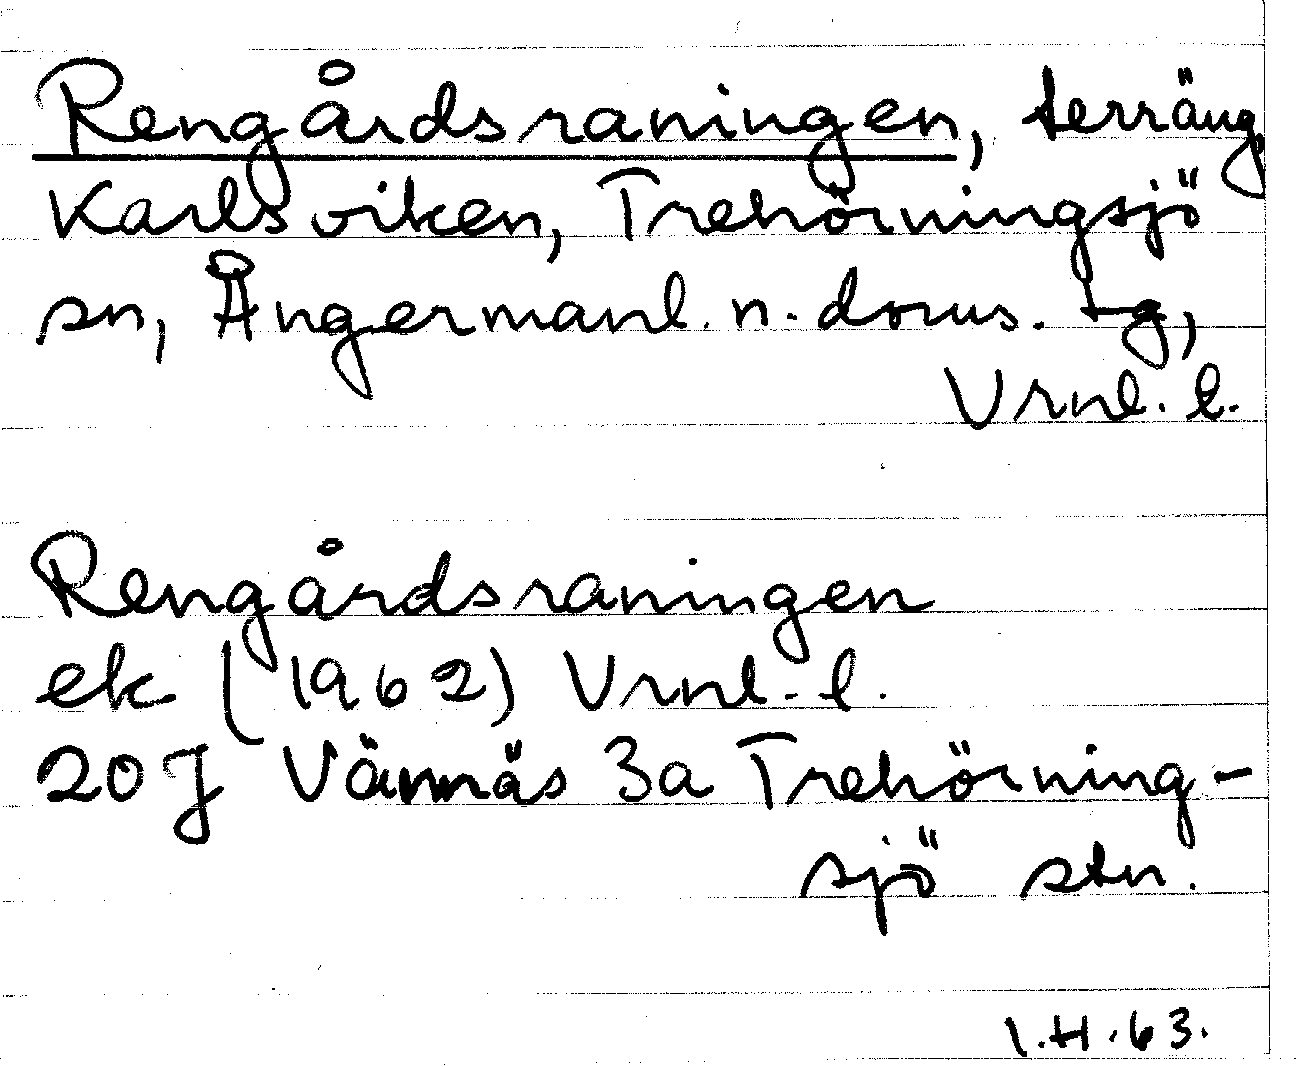 Rengårdsraningen, terräng,
Karlsviken, Trehörningsjö
sn, Ångermanl. n. doms. tg,
Vrnl. l.
Rengårdsraningen
ek (1962) Vrnl. l.
20J Vännäs 3a Trehörning-
sjö stn.
I.H.63.